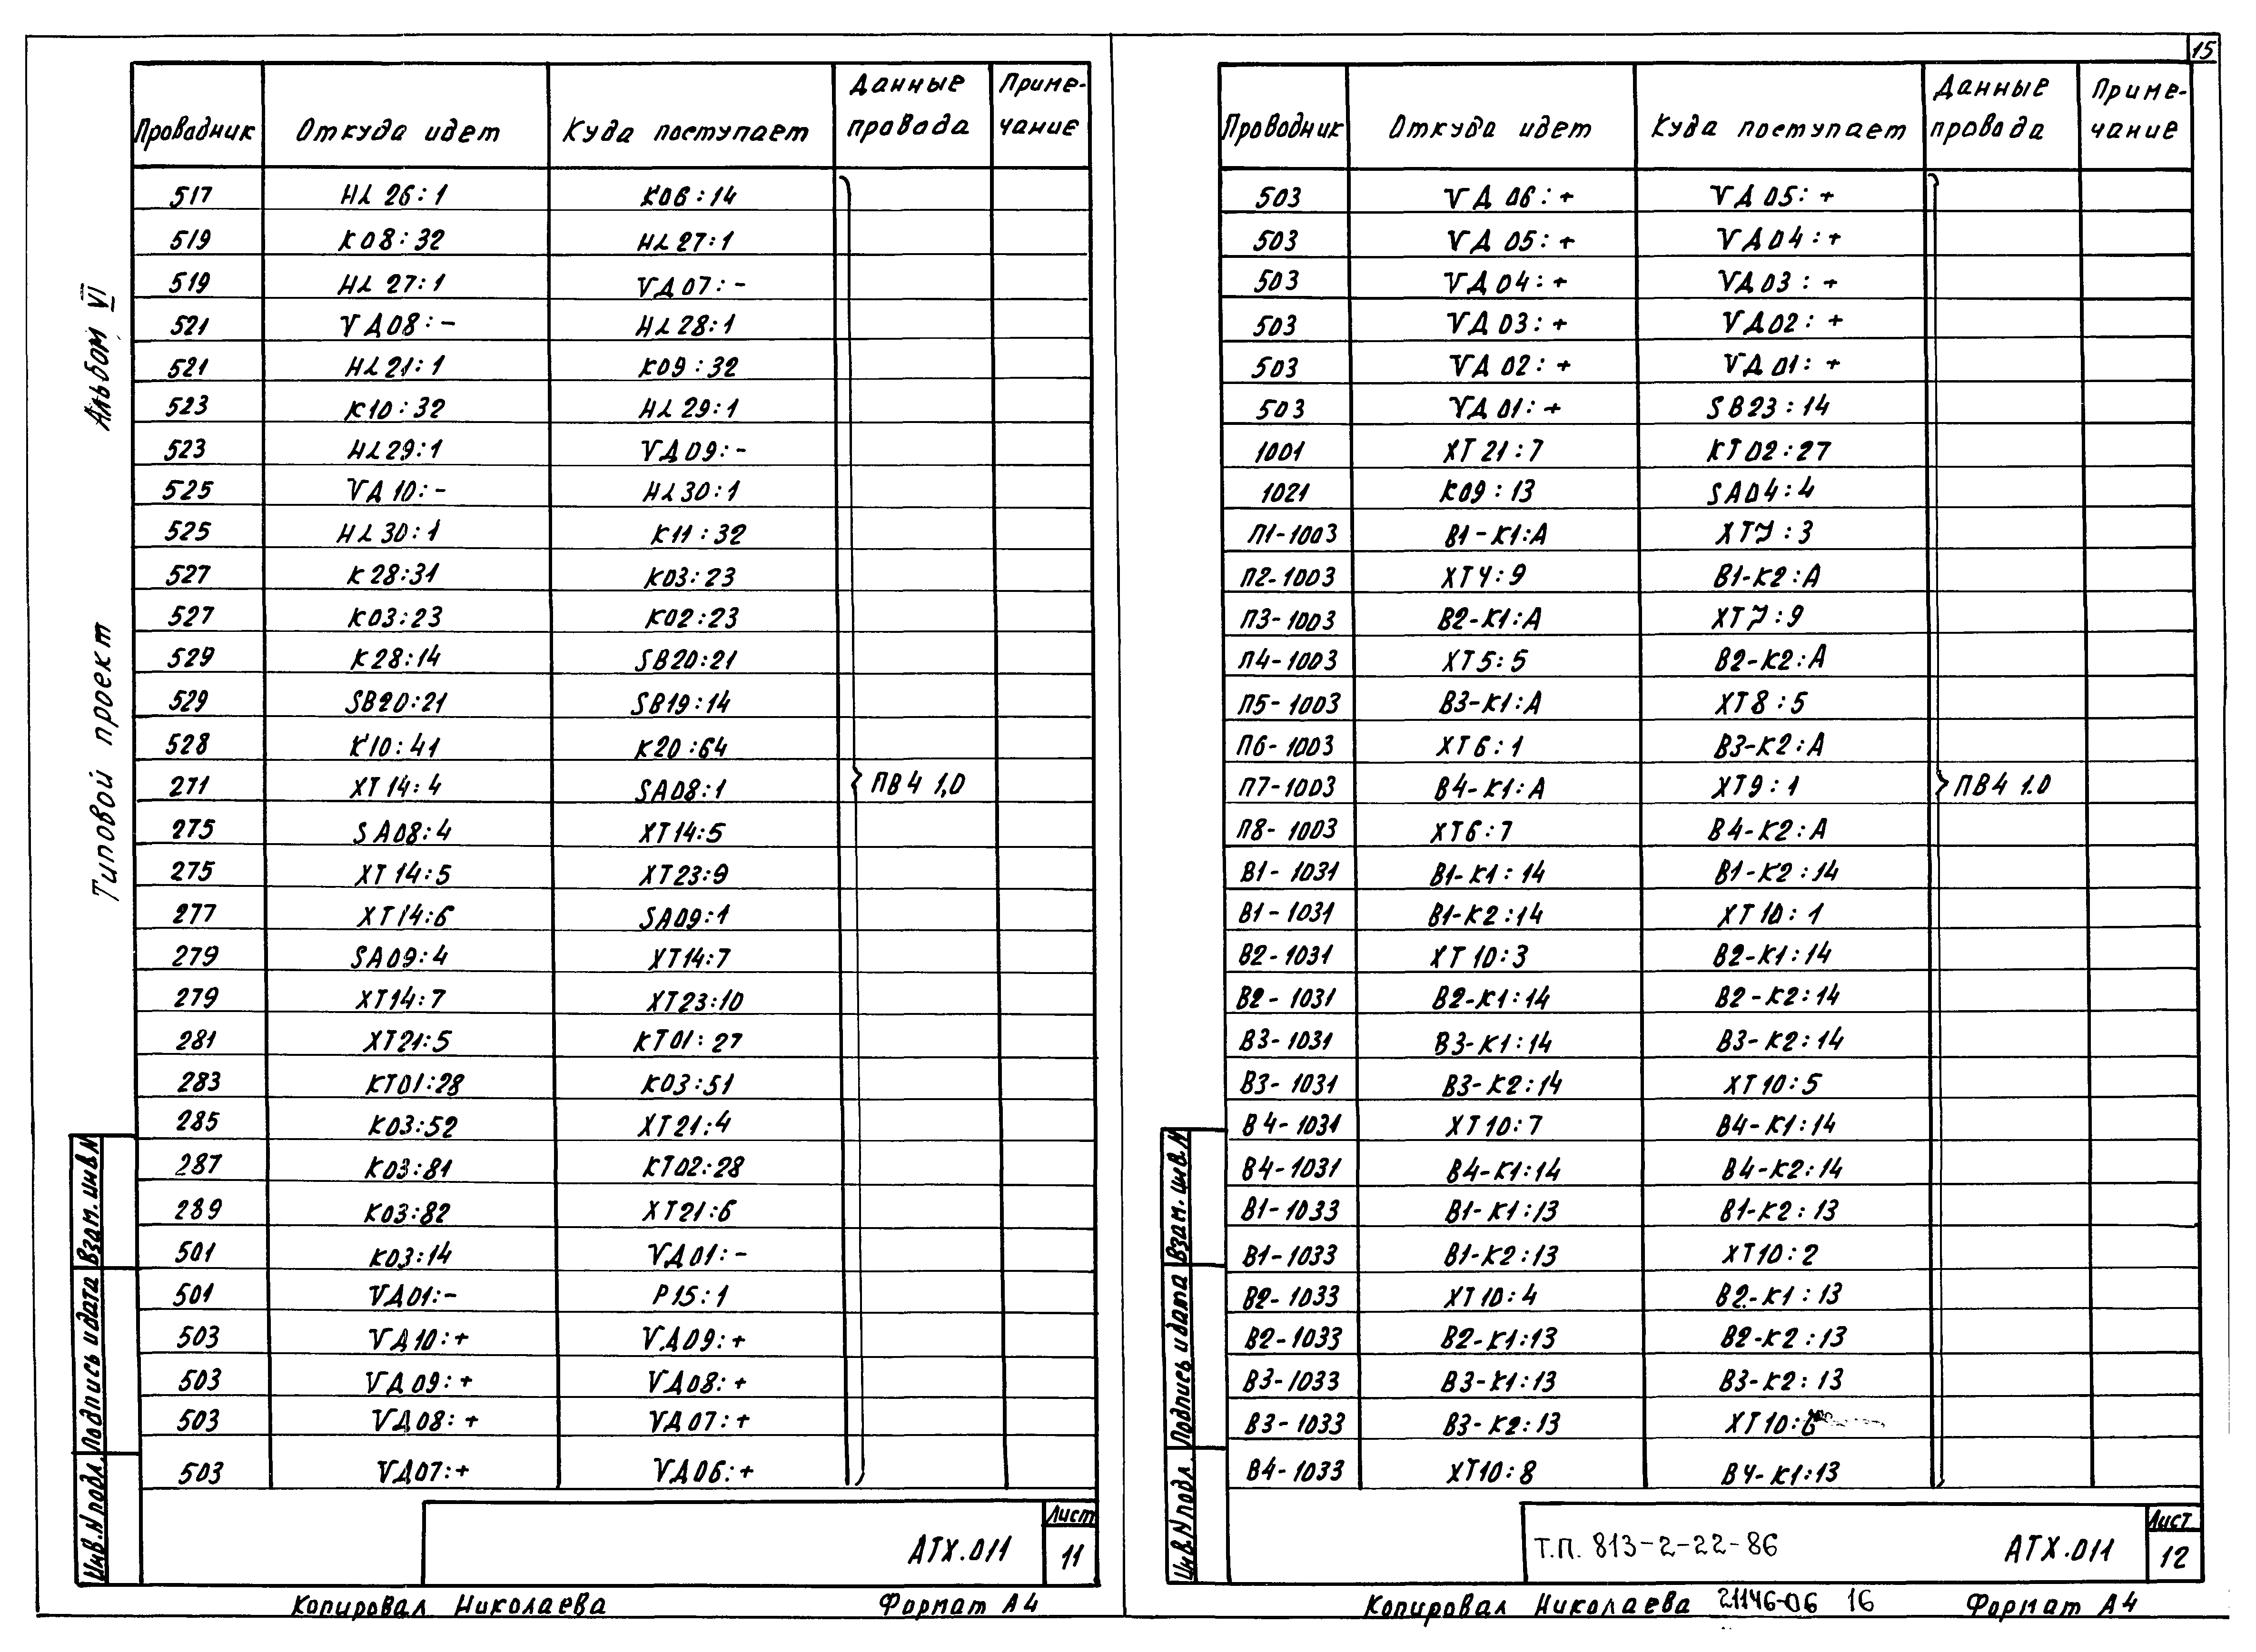 15
Альбом VI
Типовой проект
Проводник Откуда идет Куда поступает Данные провода Приме-чание
517 HL 26:1 K06:14
519 K08:32 HL27:1
519 HL 27:1 VД07:-
521 VД08:- HL28:1
521 HL21:1 K09:32
523 K10:32 HL29:1
523 HL29:1 VД09:-
525 VД10:- HL30:1
525 HL30:1 K11:32
527 K28:31 K03:23
527 K03:23 K02:23
529 K28:14 SB20:21
529 SB20:21 SB19:14
528 K10:41 K20:64
271 XT14:4 SA08:1 ПВ4 1,0
275 SA08:4 XT14:5
275 XT14:5 XT23:9
277 XT14:6 SA09:1
279 SA09:4 XT14:7
279 XT14:7 XT23:10
281 XT21:5 KT01:27
283 KT01:28 K03:51
285 K03:52 XT21:4
287 K03:81 KT02:28
289 K03:82 XT21:6
501 K03:14 VД01:-
501 VД01:- P15:1
503 VД10:+ VД09:+
503 VД09:+ VД08:+
503 VД08:+ VД07:+
503 VД07:+ VД06:+
Взам. инв.N
Подпись и дата
Инв.N подл.
АТХ.011
Лист
11
Копировал Николаева Формат А4
Проводник Откуда идет Куда поступает Данные провода Приме-чание
503 VД06:+ VД05:+
503 VД05:+ VД04:+
503 VД04:+ VД03:+
503 VД03:+ VД02:+
503 VД02:+ VД01:+
503 VД01:+ SB23:14
1001 XT21:7 KT02:27
1021 K09:13 SA04:4
П1-1003 B1-K1:A XT7:3
П2-1003 XT4:9 B1-K2:A
П3-1003 B2-K1:A XT7:9
П4-1003 XT5:5 B2-K2:A
П5-1003 B3-K1:A XT8:5
П6-1003 XT6:1 B3-K2:A
П7-1003 B4-K1:A XT9:1 ПВ4 1.0
П8-1003 XT6:7 B4-K2:A
B1-1031 B1-K1:14 B1-K2:14
B1-1031 B1-K2:14 XT10:1
B2-1031 XT10:3 B2-K1:14
B2-1031 B2-K1:14 B2-K2:14
B3-1031 B3-K1:14 B3-K2:14
B3-1031 B3-K2:14 XT10:5
B4-1031 XT10:7 B4-K1:14
B4-1031 B4-K1:14 B4-K2:14
B1-1033 B1-K1:13 B1-K2:13
B1-1033 B1-K2:13 XT10:2
B2-1033 XT10:4 B2-K1:13
B2-1033 B2-K1:13 B2-K2:13
B3-1033 B3-K1:13 B3-K2:13
B3-1033 B3-K2:13 XT10:6
B4-1033 XT10:8 B4-K1:13
Взам. инв.N
Подпись и дата
Инв.N подл.
Т.П. 813-2-22-86
АТХ.011
Лист
12
Копировал Николаева 21146-06 16 Формат А4